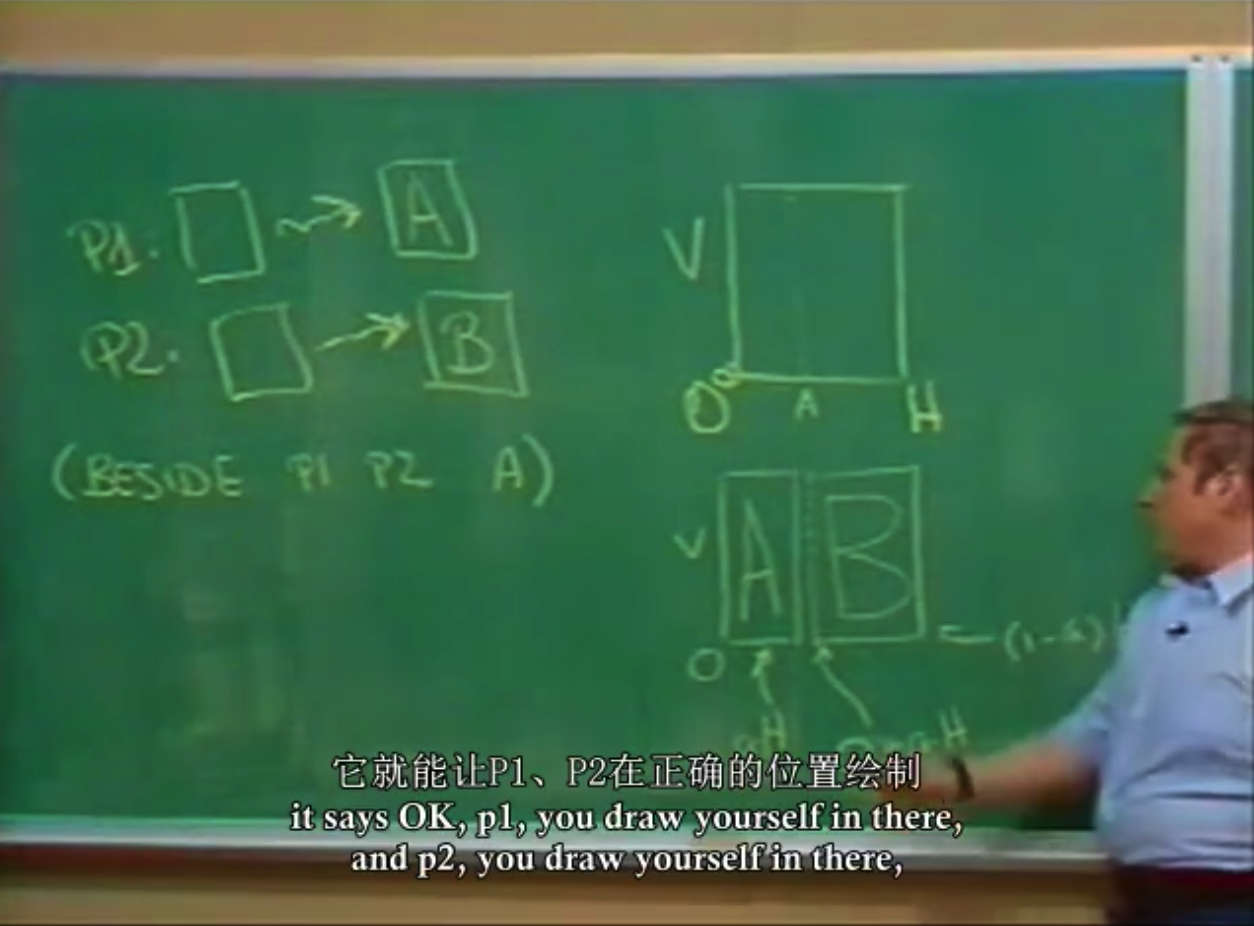 P1.
A
P2.
B
(BESIDE P1 P2 A)
V
O
A
H
V
A
B
O
它就能让P1、P2在正确的位置绘制
it says OK, p1, you draw yourself in there,
and p2, you draw yourself in there,